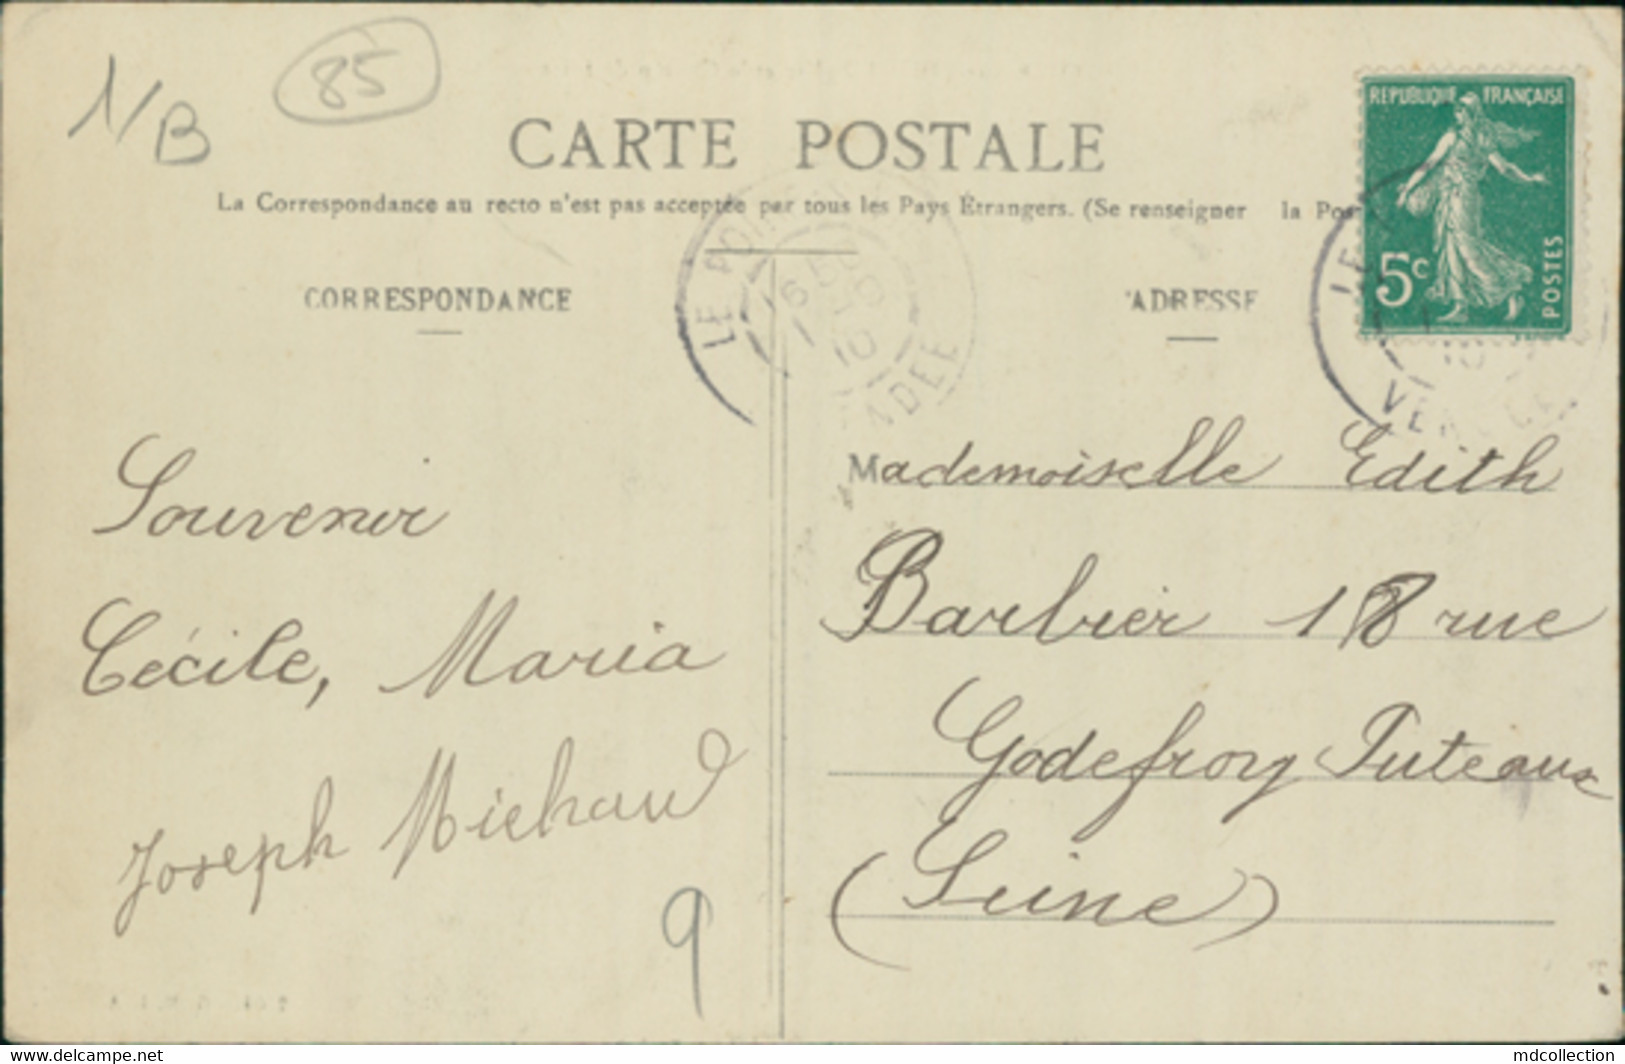 N/B
85
CARTE POSTALE
La Correspondance au recto n'est pas acceptée par tous les Pays Étrangers. (Se renseigner la
CORRESPONDANCE
ADRESSE
REPUBLIQUE FRANÇAISE
5c
POSTES
LE
16
10
Souvenir
Cécile, Maria
Joseph Michaud
9
Mademoiselle Edith
Barbier 18 rue
Godefroy Puteaux
(Seine)
www.delcampe.net
mdcollection